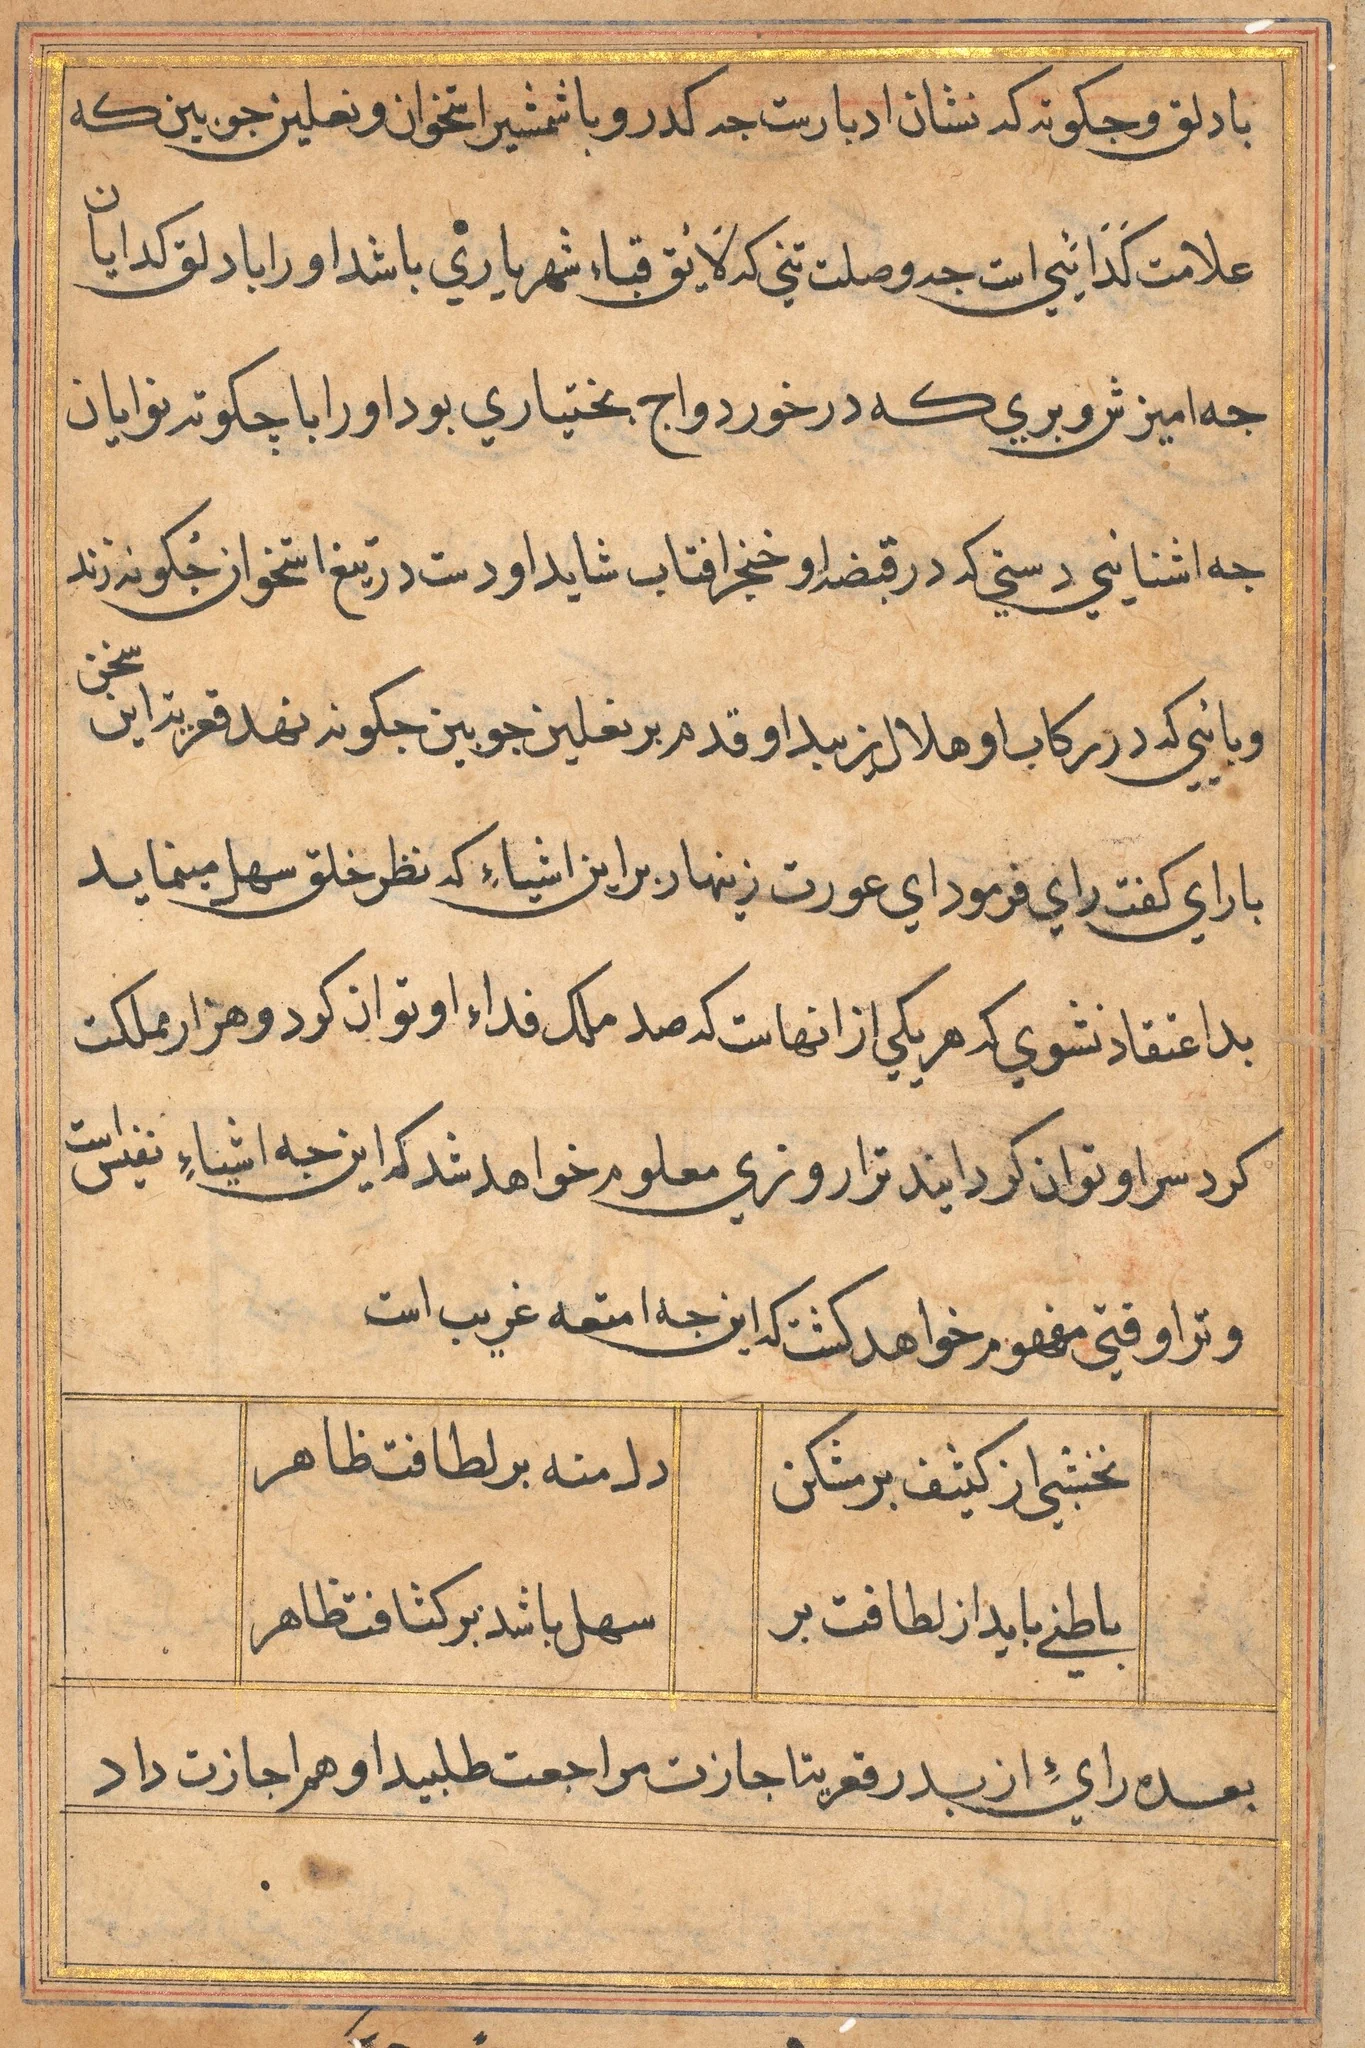 بادلق و جکونه که نشان ادبارست جه کدر و باشمشیر استخوان و نعلین جوبین که
علامت کَدَائیي است جه وصلت تني که لَایٔق قباء شهریاري باشد او را بادلق کدایان
جه امیزش و بري که در خورد واج بختیاري بود او را با چکونه نوایان
جه اشنائیي دستي که در قبضه او خنجر افتاب شاید او دست در تیغ استخوان جکونه زند
و بائیي که در رکاب او هلال زیبد او قدم بر نعلین جوبین جکونه نهد قعریه این سخن
با راي کفت راي فرمود اي عورت زینهار براین اشیاءِ که نظر خلق سهل مینماید
بداعتقاد نشوي که هر یکي از انهاست که صد ملک فداء او توان کرد و هزار مملکت
کرد سر او توان کردانید ترا روزي معلوم خواهد شد که این جه اشیاءِ نفیس است
و ترا وقتي مفهوم خواهد کشت که این جه امتعه غریب است
نخشبي از کثیف بر مشکن دل منه بر لطافت ظاهر
باطني باید از لطافت بر سهل باشد بر کثافت ظاهر
بعده رائِ از بدر قعریه اجازت مراجعت طلبید او هم اجازت داد